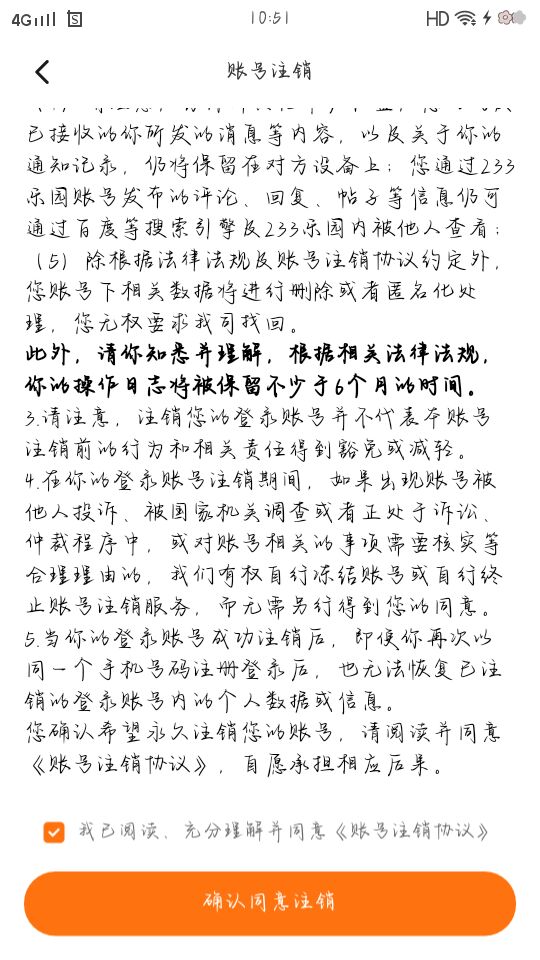 4G
10:51
HD
账号注销
已接收的你所发的消息等内容，以及关于你的
通知记录，仍将保留在对方设备上；您通过233
乐园账号发布的评论、回复、帖子等信息仍可
通过百度等搜索引擎及233乐园内被他人查看；
（5）除根据法律法规及账号注销协议约定外，
您账号下相关数据将进行删除或者匿名化处
理，您无权要求我司找回。
此外，请你知悉并理解，根据相关法律法规，
你的操作日志将被保留不少于6个月的时间。
3.请注意，注销您的登录账号并不代表本账号
注销前的行为和相关责任得到豁免或减轻。
4.在你的登录账号注销期间，如果出现账号被
他人投诉、被国家机关调查或者正处于诉讼、
仲裁程序中，或对账号相关的事项需要核实等
合理理由的，我们有权自行冻结账号或自行终
止账号注销服务，而无需另行得到您的同意。
5.当你的登录账号成功注销后，即使你再次以
同一个手机号码注册登录后，也无法恢复已注
销的登录账号内的个人数据或信息。
您确认希望永久注销您的账号，请阅读并同意
《账号注销协议》，自愿承担相应后果。
我已阅读、充分理解并同意《账号注销协议》
确认同意注销